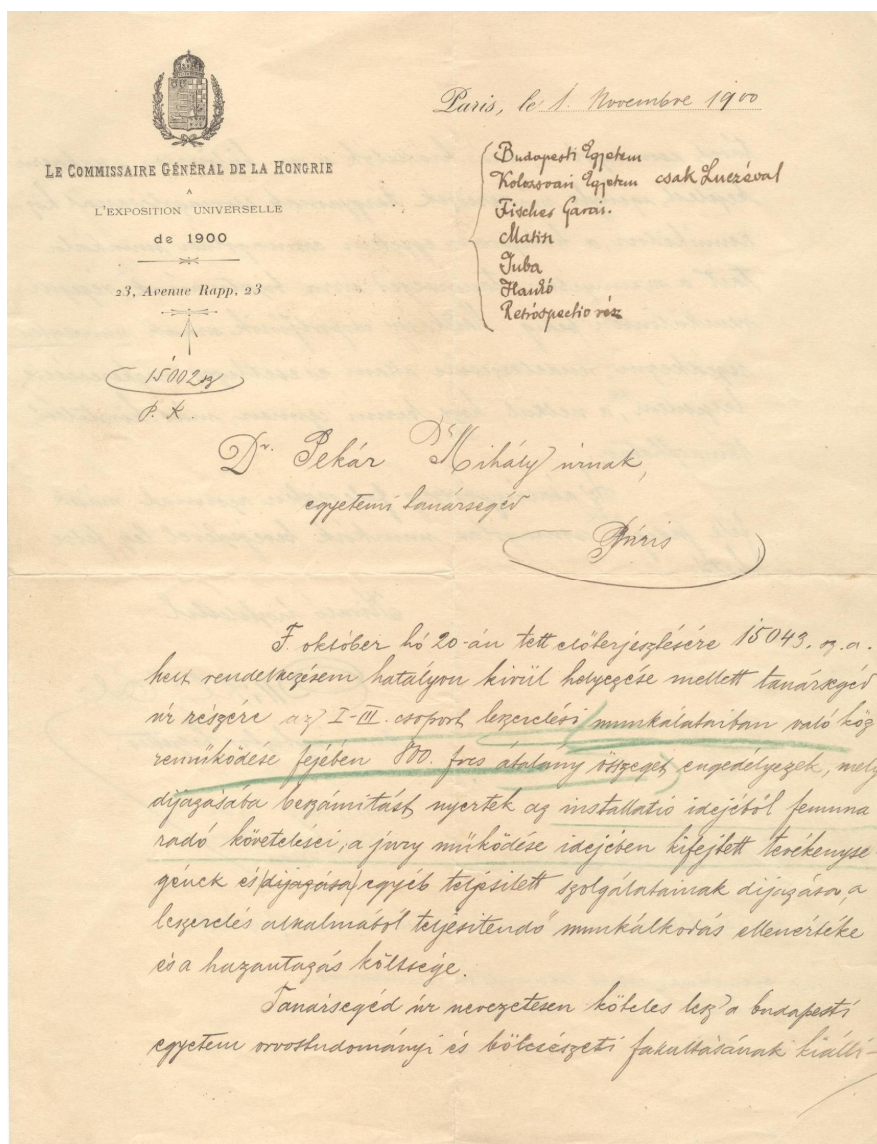 Paris, le 1. Novembre 1900
LE COMMISSAIRE GÉNÉRAL DE LA HONGRIE
A
L'EXPOSITION UNIVERSELLE
de 1900
23, Avenue Rapp, 23
15002 sz
P. K.
Budapesti Egyetem
Kolozsvári Egyetem csak Luczéval
Fischer Garás.
Matin
Juba
Hankó
Retrospectio rész
Dr. Pekár Dr Mihály úrnak,
egyetemi tanársegéd
Páris
F. október hó 20-án tett előterjesztésére 15043. sz. a.
kelt rendelkezésem hatályon kivül helyezése mellett tanársegéd
úr részére az I-III. csoport leszerelési munkálataiban való köz
reműködése fejében 800. frcs átalány összeget engedélyezek, mely
dijazásába beszámitást nyertek az installatio idejéből fennma
radó követelései, a jury működése idejében kifejtett tevékenysé
gének és (dijazása) egyéb teljesitett szolgálatainak dijazása, a
leszerelés alkalmából teljesitendő munkálkodás ellenértéke
és a hazautazás költsége.
Tanársegéd úr nevezetesen köteles lesz a budapesti
egyetem orvostudományi és bölcsészeti fakultásának kiálli-